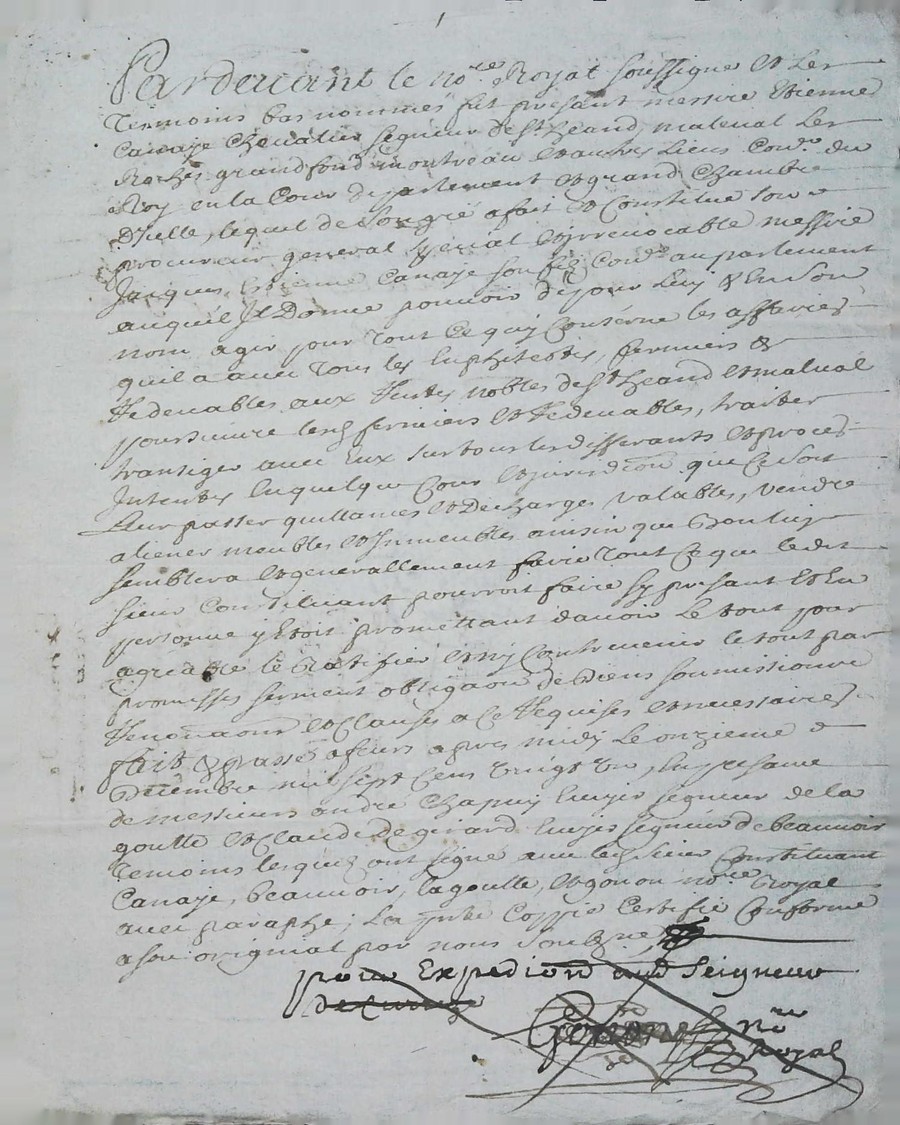 Pardevant le no.re Royal soussigné et Les
Temoins bas nommes fut presant messire Etienne
Canaye Chevalier seigneur de St heand, maleval Les
Roches grandfond montreau et autres Lieux Con.er du
Roy en la Cour de parlement et grand Chambre
D'Icelle, lequel de son gré a fait et Constitué son
procureur general special et irrevocable messire
Jacques Etienne Canaye son fils Con.er au parlement
auquel Il Donne pouvoir de pour Luy & En son
nom agir pour Tout Ce quy Conserne les affaires
quil a avec Tous les Emphiteotes, fermiers &
Redevables aux Rentes nobles de St heand et malval
poursuivre lesd fermiers et Redevables, traiter
transiger avec Eux sur tous les differants et proces
Intentés En quelque Cour et jurisdion que Ce Soit
Leur passer quittances et Decharges valables, vendre
aliener meubles et Immeubles ainsin que Bon luy
semblera et generallement faire Tout Ce que ledit
sieur Constituant pourroit faire sy presant Et En
personne y Etoit promettant d'avoir Le tout pour
agreable le Ratifier et ny Contrevenir le tout par
promesses serment obligaon de Biens soumissions
Renonaons et Clauses a Ce Requises et necessaires
fait & passé a feurs apres midy Le onzieme
Decembre mil sept Cens vingt un, En presance
de messieurs andre Chapuy Escuyer seigneur de la
goutte et Claude De girard Escuyer seigneur de beauvoir
Temoins lesquels ont signé avec led sieur Constituant
Canaye, beauvoir, lagoutte, et gonon no.re Royal
avec paraphe; La pnte Coppie Certifié Conforme
a son original par nous Soubsigné
pour Expedion aud Seigneur
Gonon no.re
Royal